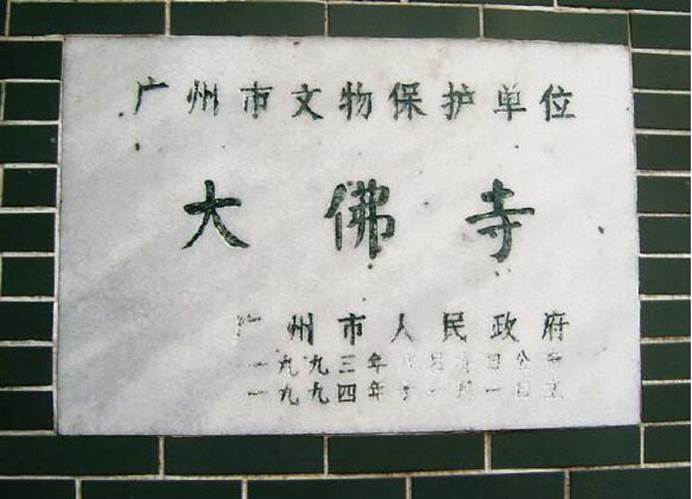 广州市文物保护单位
大佛寺
广州市人民政府
一九九三年八月 日公布
一九九四年十一月一日立